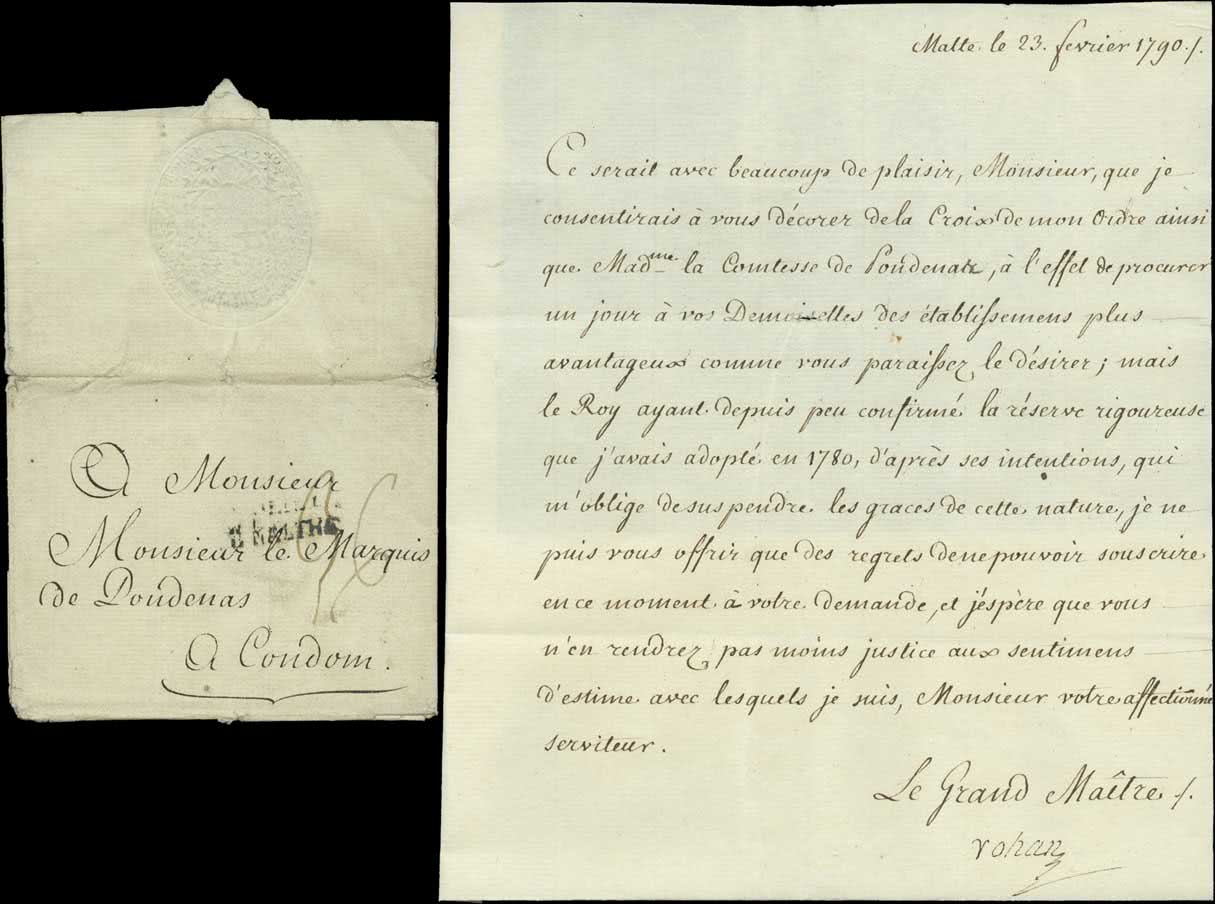 A Monsieur
Monsieur le Marquis
de Poudenas
A Condom.
DE MALTHE
Malte le 23. fevrier 1790 ./.
Ce serait avec beaucoup de plaisir, Monsieur, que je
consentirais à vous décorer de la Croix de mon Ordre ainsi
que Mad.me la Comtesse de Poudenas, à l'effet de procurer
un jour à vos Demoiselles des établissemens plus
avantageux comme vous paraissez le désirer; mais
le Roy ayant depuis peu confirmé la réserve rigoureuse
que j'avais adopté en 1780, d'après ses intentions, qui
m'oblige de suspendre les graces de cette nature, je ne
puis vous offrir que des regrets de ne pouvoir souscrire
en ce moment à votre demande, et j'éspère que vous
n'en rendrez pas moins justice aux sentimens
d'estime avec lesquels je suis, Monsieur votre affectionné
serviteur.
Le Grand Maître ./.
rohan